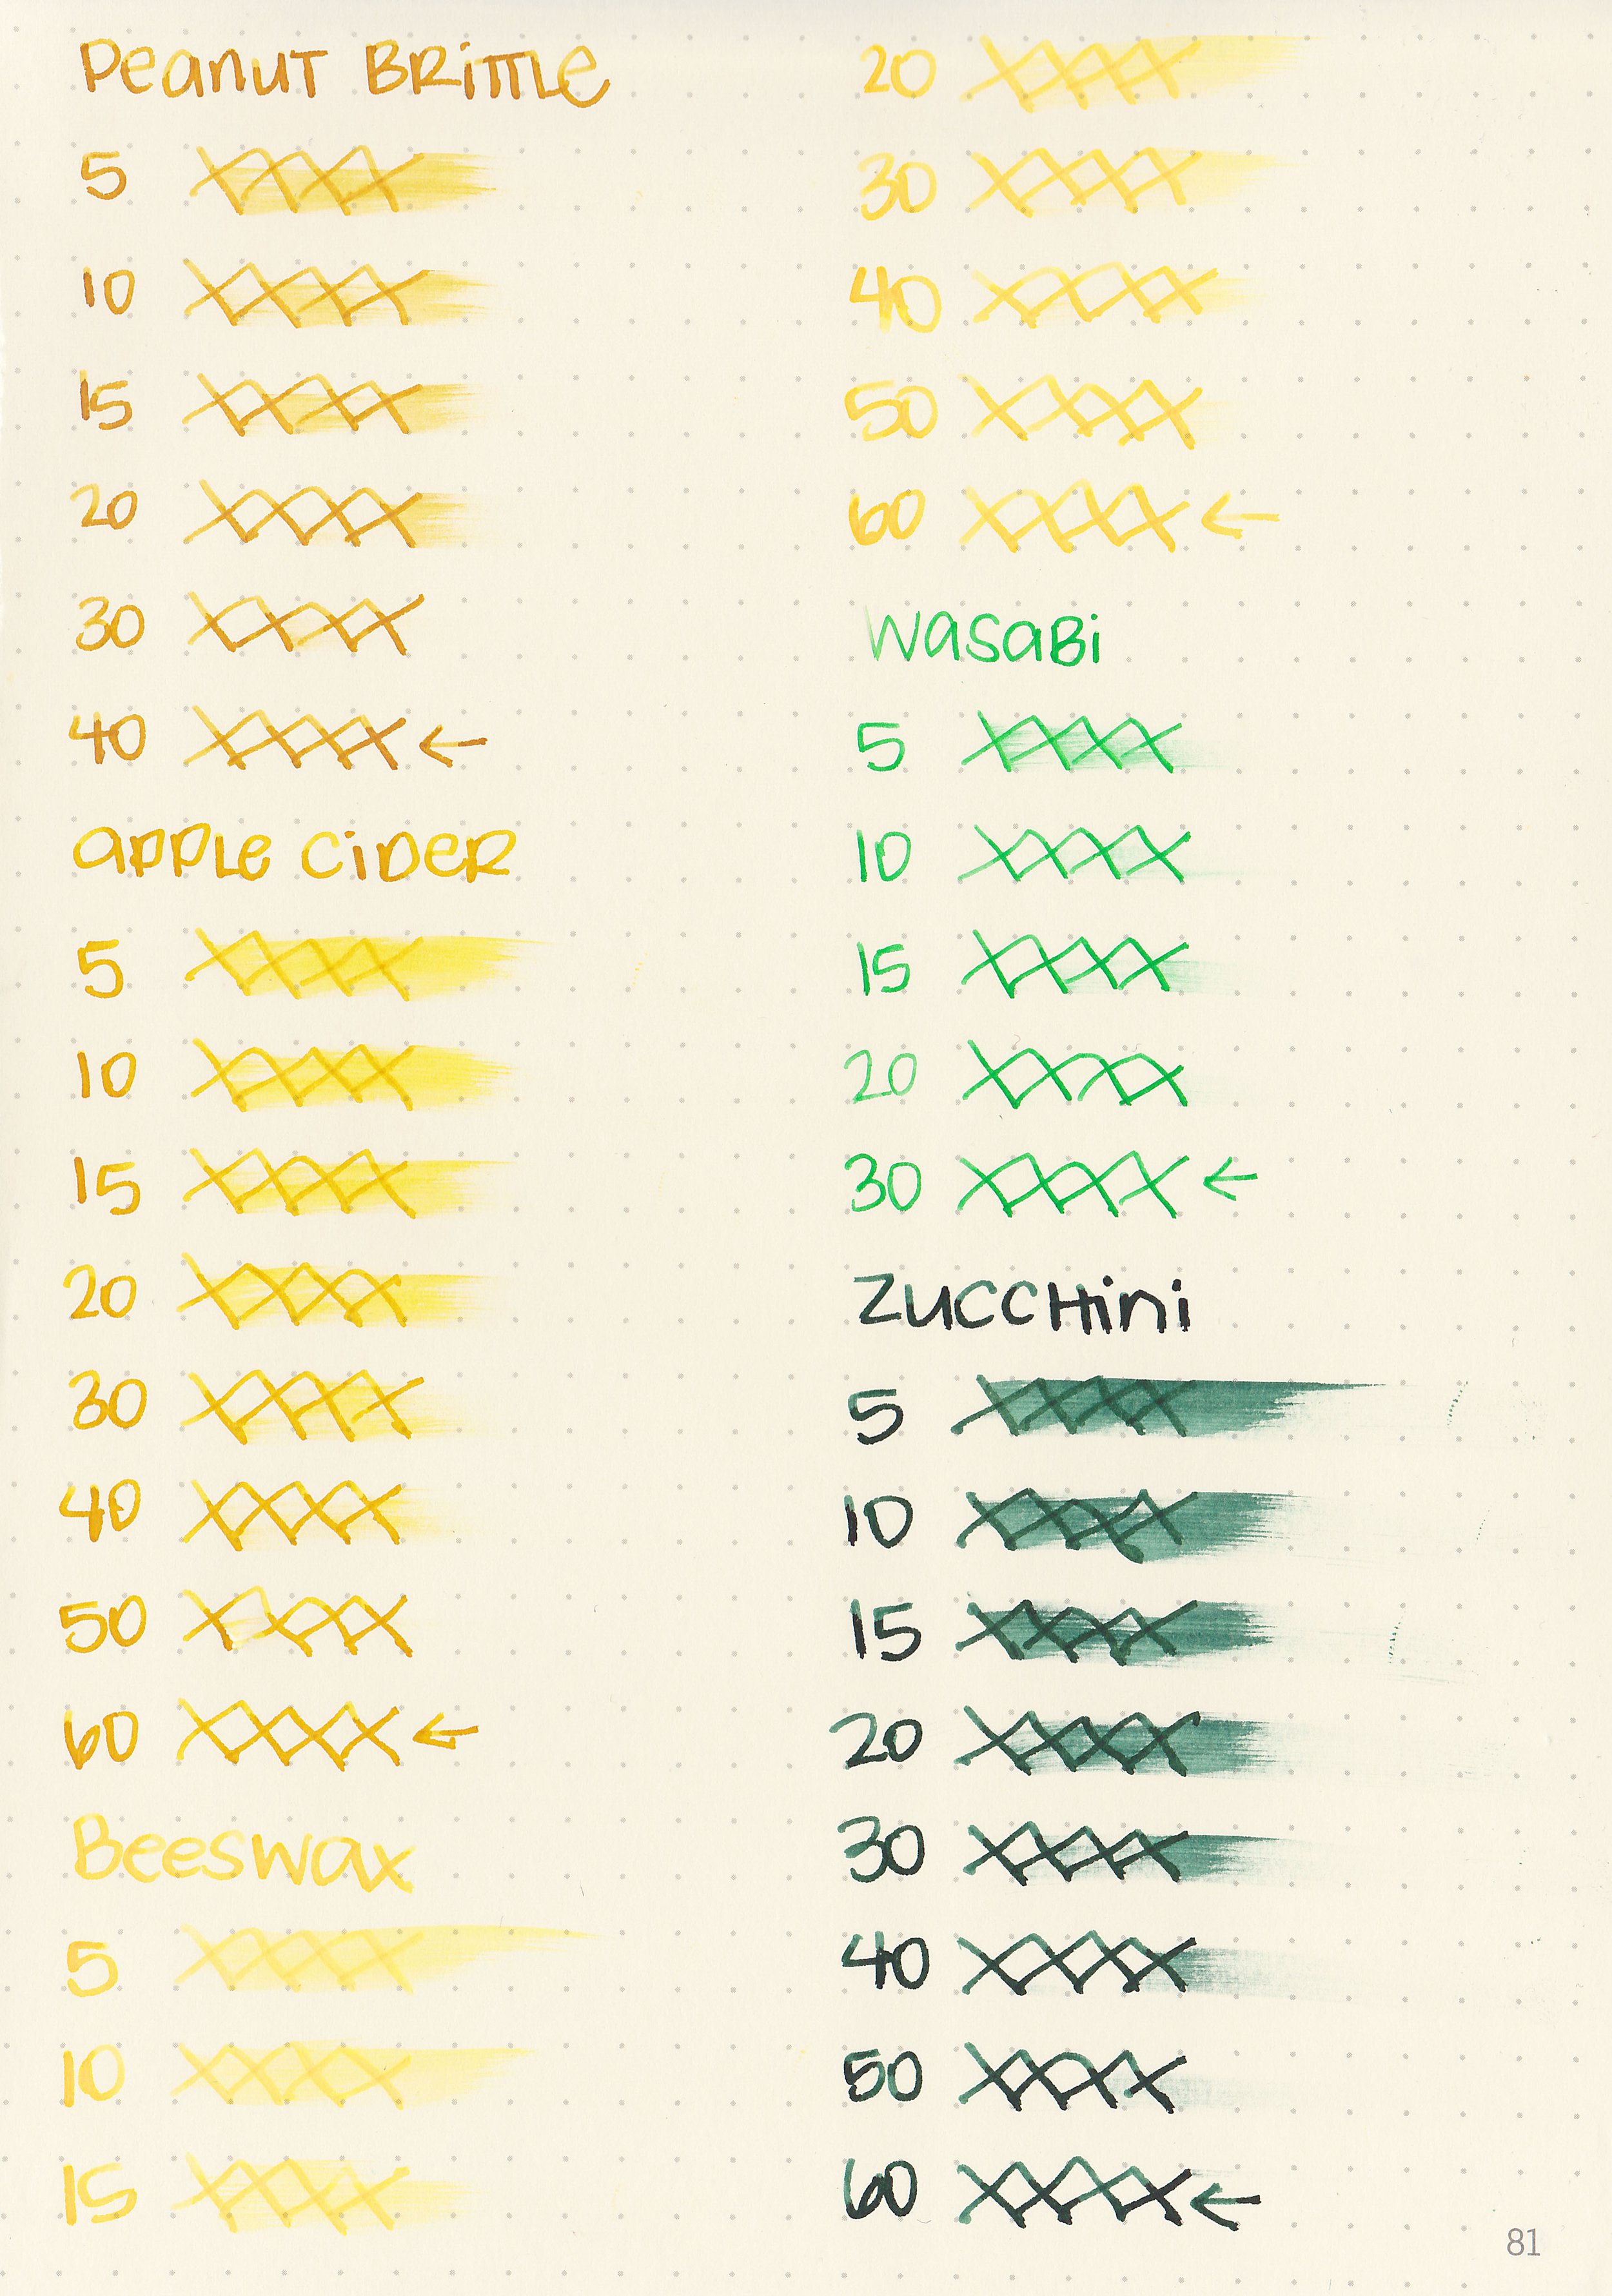 Peanut Brittle
5
10
15
20
30
40 ←
apple cider
5
10
15
20
30
40
50
60 ←
Beeswax
5
10
15
20
30
40
50
60 ←
wasabi
5
10
15
20
30 ←
Zucchini
5
10
15
20
30
40
50
60 ←
81